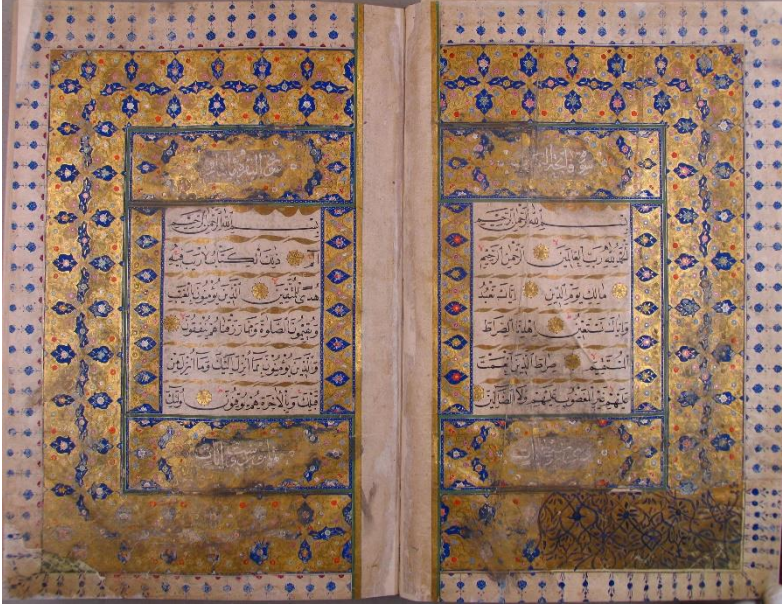 بسم الله الرحمن الرحيم
الحمد لله رب العالمين الرحمن الرحيم
مالك يوم الدين اياك نعبد
واياك نستعين اهدنا الصراط
المستقيم صراط الذين انعمت
عليهم غير المغضوب عليهم ولا الضالين
بسم الله الرحمن الرحيم
الم ذلك الكتاب لا ريب فيه
هدى للمتقين الذين يؤمنون بالغيب
ويقيمون الصلوة ومما رزقناهم ينفقون
والذين يؤمنون بما انزل اليك وما انزل من
قبلك وبالآخرة هم يوقنون اولئك